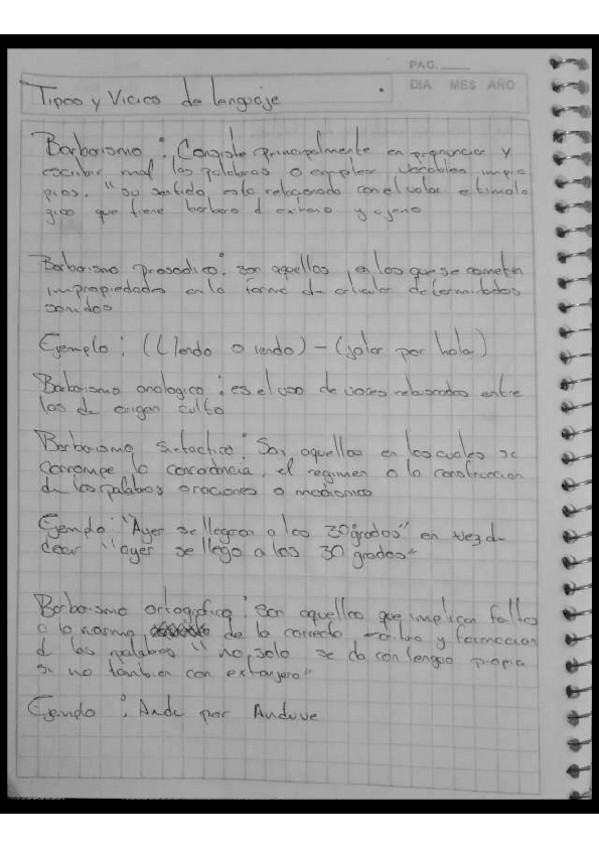 PAG.
DIA MES AÑO
Tipos y Vicios de lenguaje
Barbarismo : Consiste principalmente en pronunciar y
escribir mal las palabras o emplear vocablos impro
pios. "su sentido esta relacionado con el valor etimolo
gico que tiene barbaro d extraño y ajeno
Barbarismo prosodico : son aquellos en los que se cometen
impropiedades en la forma de articular determinados
sonidos
Ejemplo : (Llendo o iendo) - (jolar por hola)
Barbarismo analogico : es el uso de voces rebuscadas entre
las de origen culto
Barbarismo sintactico : Son aquellos en los cuales se
corrompe la concordancia, el regimen o la construccion
de las palabras oraciones o modismos
Ejemplo : "Ayer se llegaron a los 30 grados" en vez d
decir "ayer se llego a los 30 grados"
Barbarismo ortografico : son aquellos que implican faltas
a la norma de la correcta y formacion
d las palabras "no solo se da con lengua propia
si no tambien con extranjera"
Ejemplo : Ande por Anduve